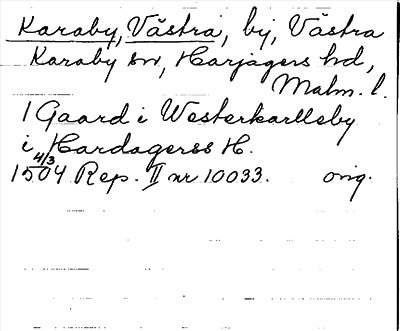 Karaby, Västra, by, Västra
Karaby sn, Harjagers hd,
Malm. l.
1 Gaard i Westerkarlleby
i Hardagerss H.
4/3
1504 Rep. II nr 10033. orig.